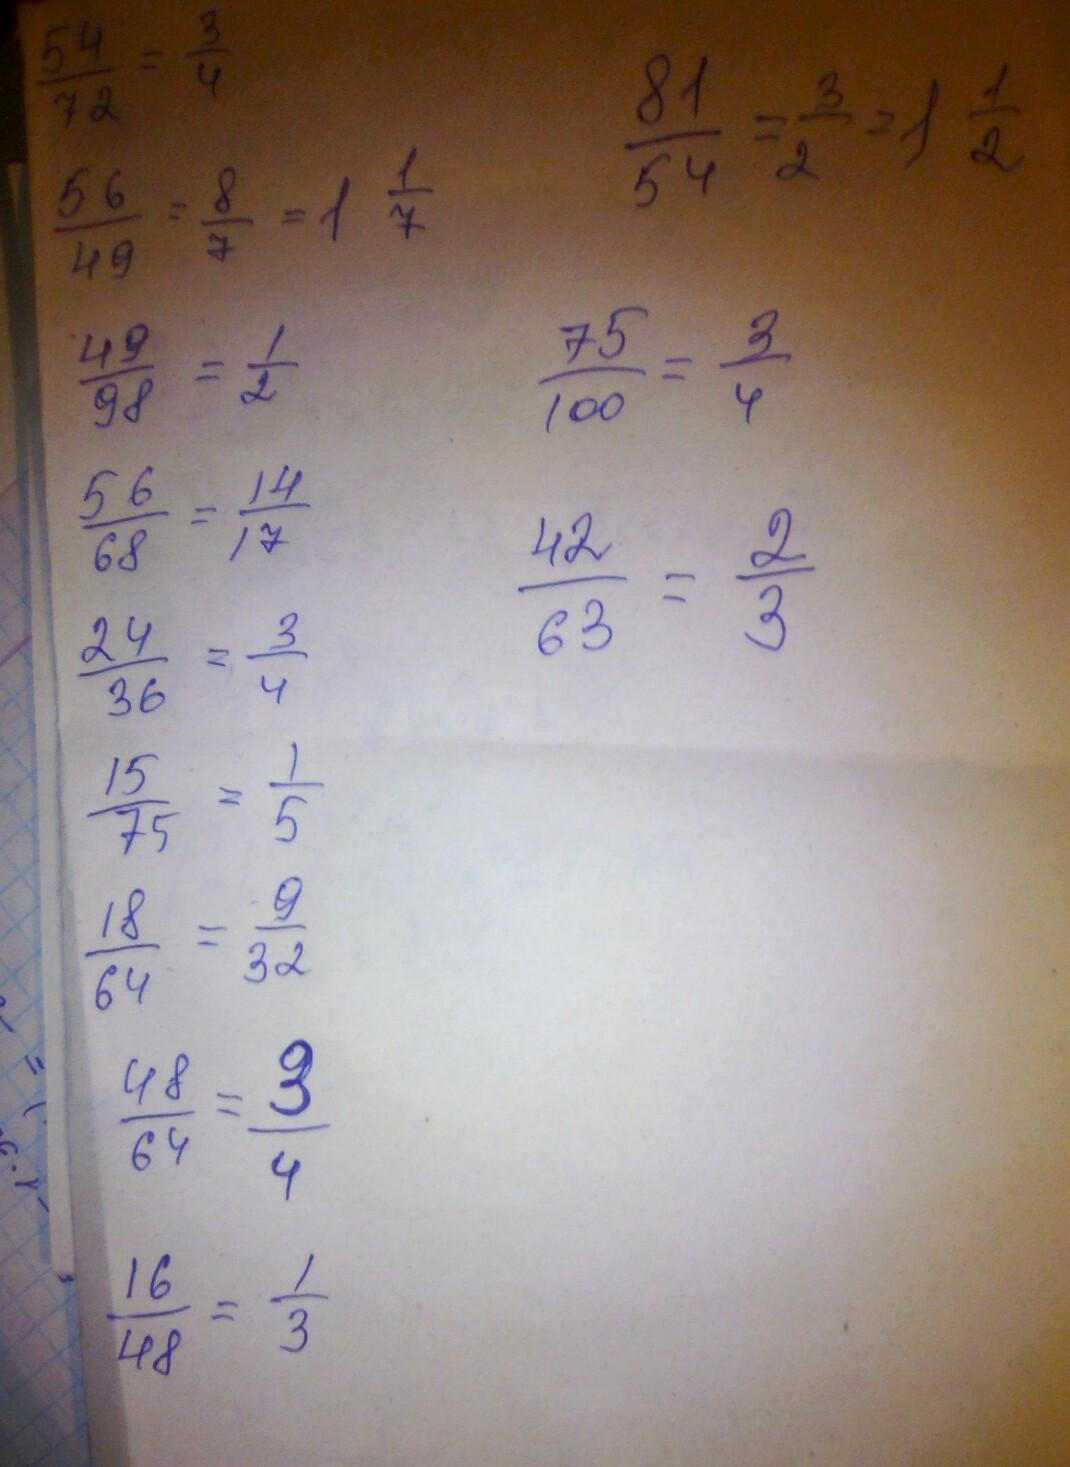 54/72 = 3/4
56/49 = 8/7 = 1 1/7
49/98 = 1/2
56/68 = 14/17
24/36 = 3/4
15/75 = 1/5
18/64 = 9/32
48/64 = 3/4
16/48 = 1/3
81/54 = 3/2 = 1 1/2
75/100 = 3/4
42/63 = 2/3